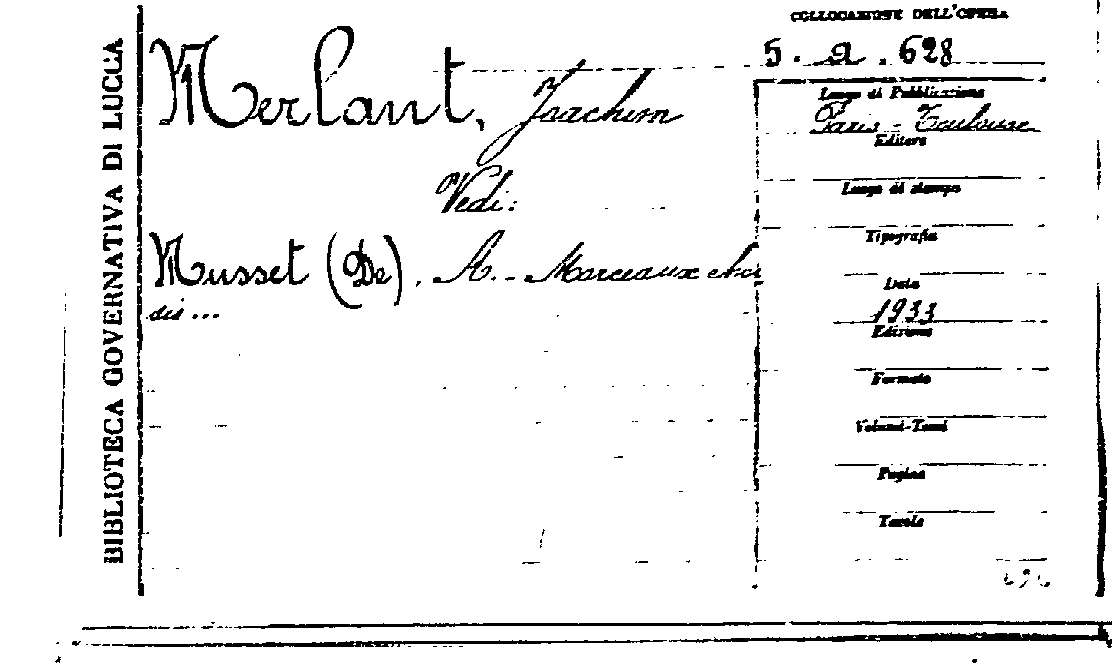 BIBLIOTECA GOVERNATIVA DI LUCCA
Merlant, Joachim
Vedi:
Musset (De). A. - Morceaux choi
sis ...
COLLOCAZIONE DELL'OPERA
5. a. 628
Luogo di Pubblicazione
Paris - Toulouse
Editore
Luogo di stampa
Tipografia
Data
1933
Edizione
Formato
Volumi-Tomi
Pagine
Tavole